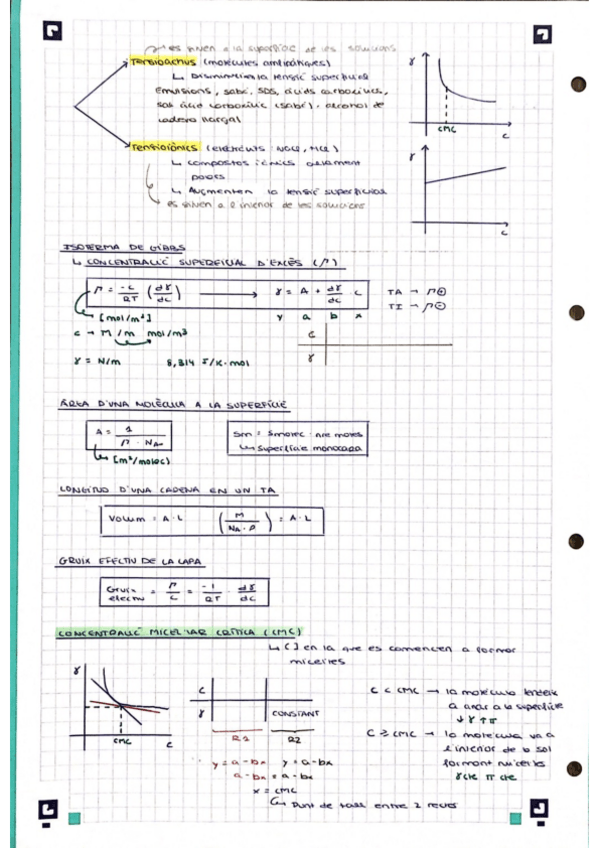 es viven a la superfície de les solucions
Tensioactius (molècules amfipàtiques)
↳ Disminueixen la tensió superficial
Emulsions, sabó, SDS, àcids carboxílics,
sal àcid carboxílic (sabó), alcohol de
cadena llarga
γ
CMC
c
Tensioiònics (electròlits: NaCl, HCl)
↳ compostos iònics altament
polars
↳ Augmenten la tensió superficial
es viven a l'interior de les solucions
γ
c
ISOTERMA DE GIBBS
↳ CONCENTRACIÓ SUPERFICIAL D'EXCÉS (Γ)
Γ = -c/RT (dγ/dc) → γ = A + dγ/dc · c
TA → Γ⊕
TI → Γ⊖
[mol/m²]
y a b x
c → M/m mol/m³
c
γ
γ = N/m 8,314 J/K·mol
ÀREA D'UNA MOLÈCULA A LA SUPERFÍCIE
A = 1/(Γ · NA)
[m²/molec]
Sm = Smolec · nre moles
↳ superfície monocapa
LONGITUD D'UNA CADENA EN UN TA
Volum = A·L (M/(NA·ρ)) = A·L
GRUIX EFECTIU DE LA CAPA
Gruix efectiu = Γ/c = -1/RT · dγ/dc
CONCENTRACIÓ MICEL·LAR CRÍTICA (CMC)
↳ [ ] en la que es comencen a formar
micel·les
γ
CMC
c
c
γ CONSTANT
R1 R2
y = a - bx y = a - bx
a - bx = a - bx
x = CMC
↳ Punt de tall entre 2 rectes
C < CMC → la molècula tendeix
a anar a la superfície
↓γ ↑π
C ≥ CMC → la molècula va a
l'interior de la sol
formant micel·les
γ cte π cte